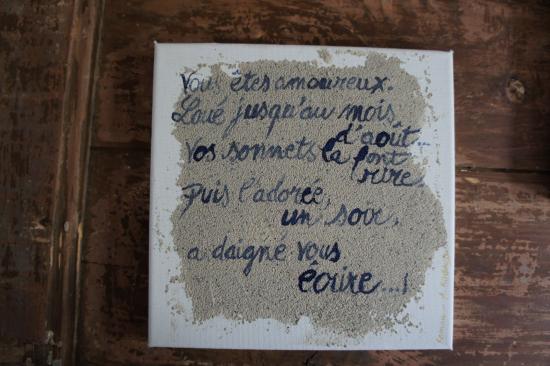 Vous êtes amoureux.
Loué jusqu'au mois
d'août...
Vos sonnets la font
rire.
Puis l'adorée,
un soir,
a daigné vous
écrire...!